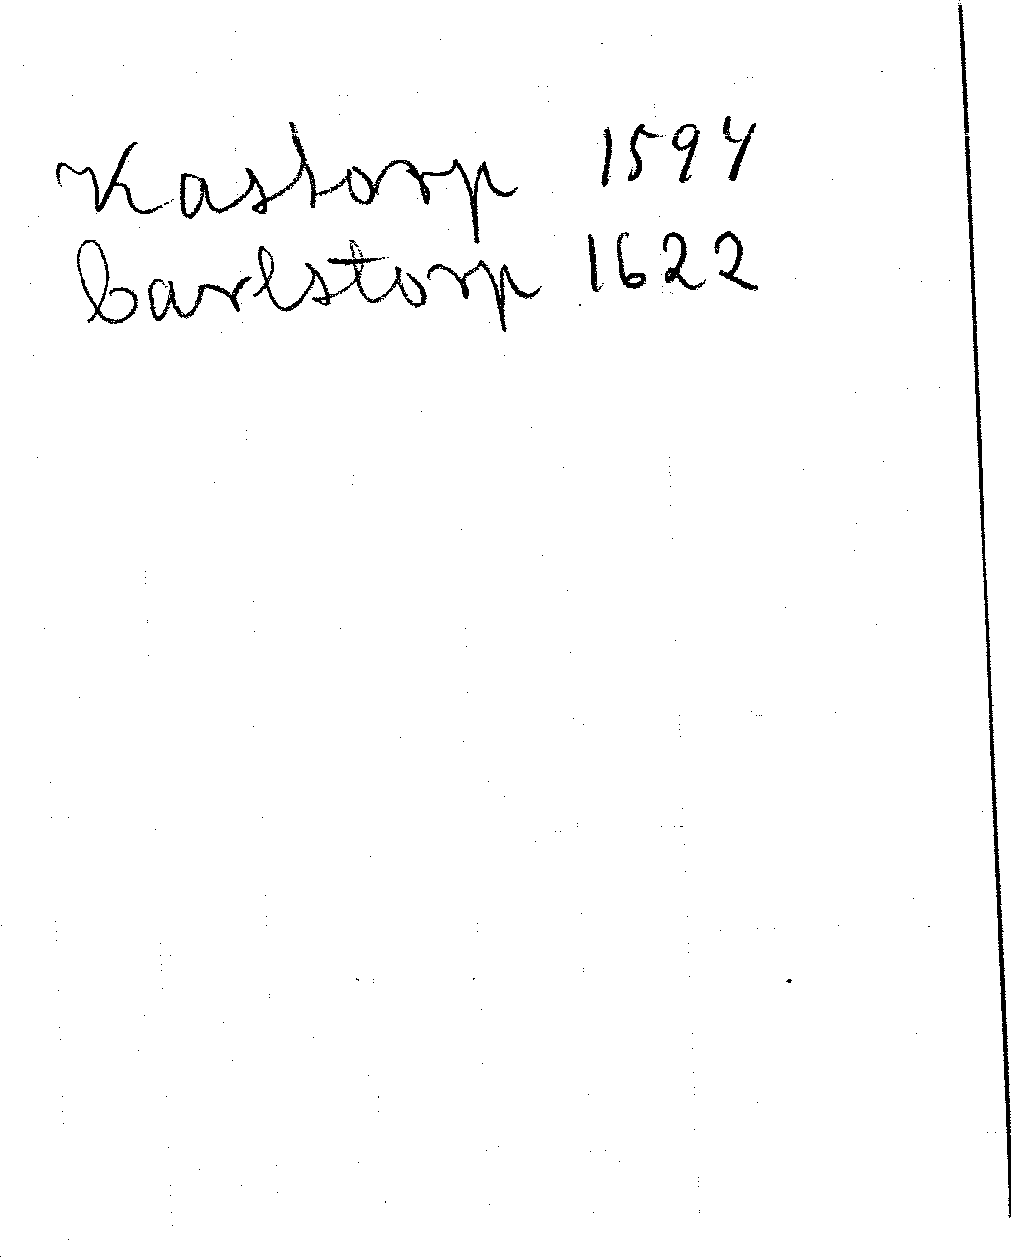 Kastorp 1594
Carlstorp 1622